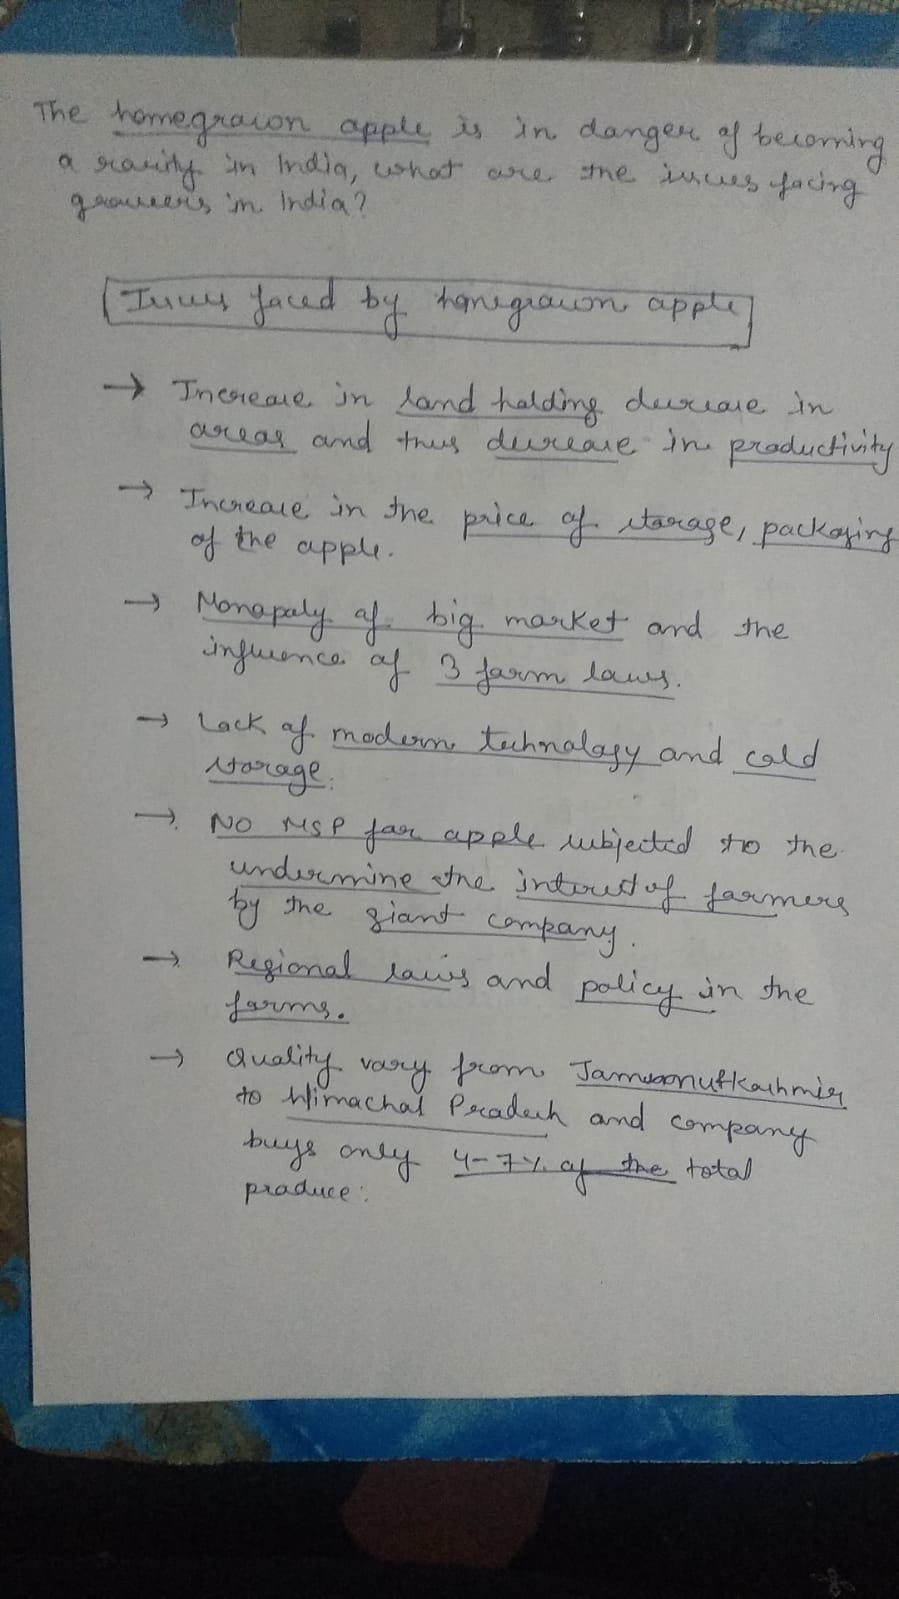 The homegrown apple is in danger of becoming
a rarity in India, what are the issues facing
growers in India?
Issues faced by homegrown apple
→ Increase in land holding decrease in
areas and thus decrease in productivity
→ Increase in the price of storage, packaging
of the apple.
→ Monopoly of big market and the
influence of 3 farm laws.
→ Lack of modern technology and cold
storage.
→ No MSP for apple subjected to the
undermine the interest of farmers
by the giant company.
→ Regional laws and policy in the
farms.
→ Quality vary from Jammu&Kashmir
to Himachal Pradesh and company
buys only 4-7% of the total
produce.